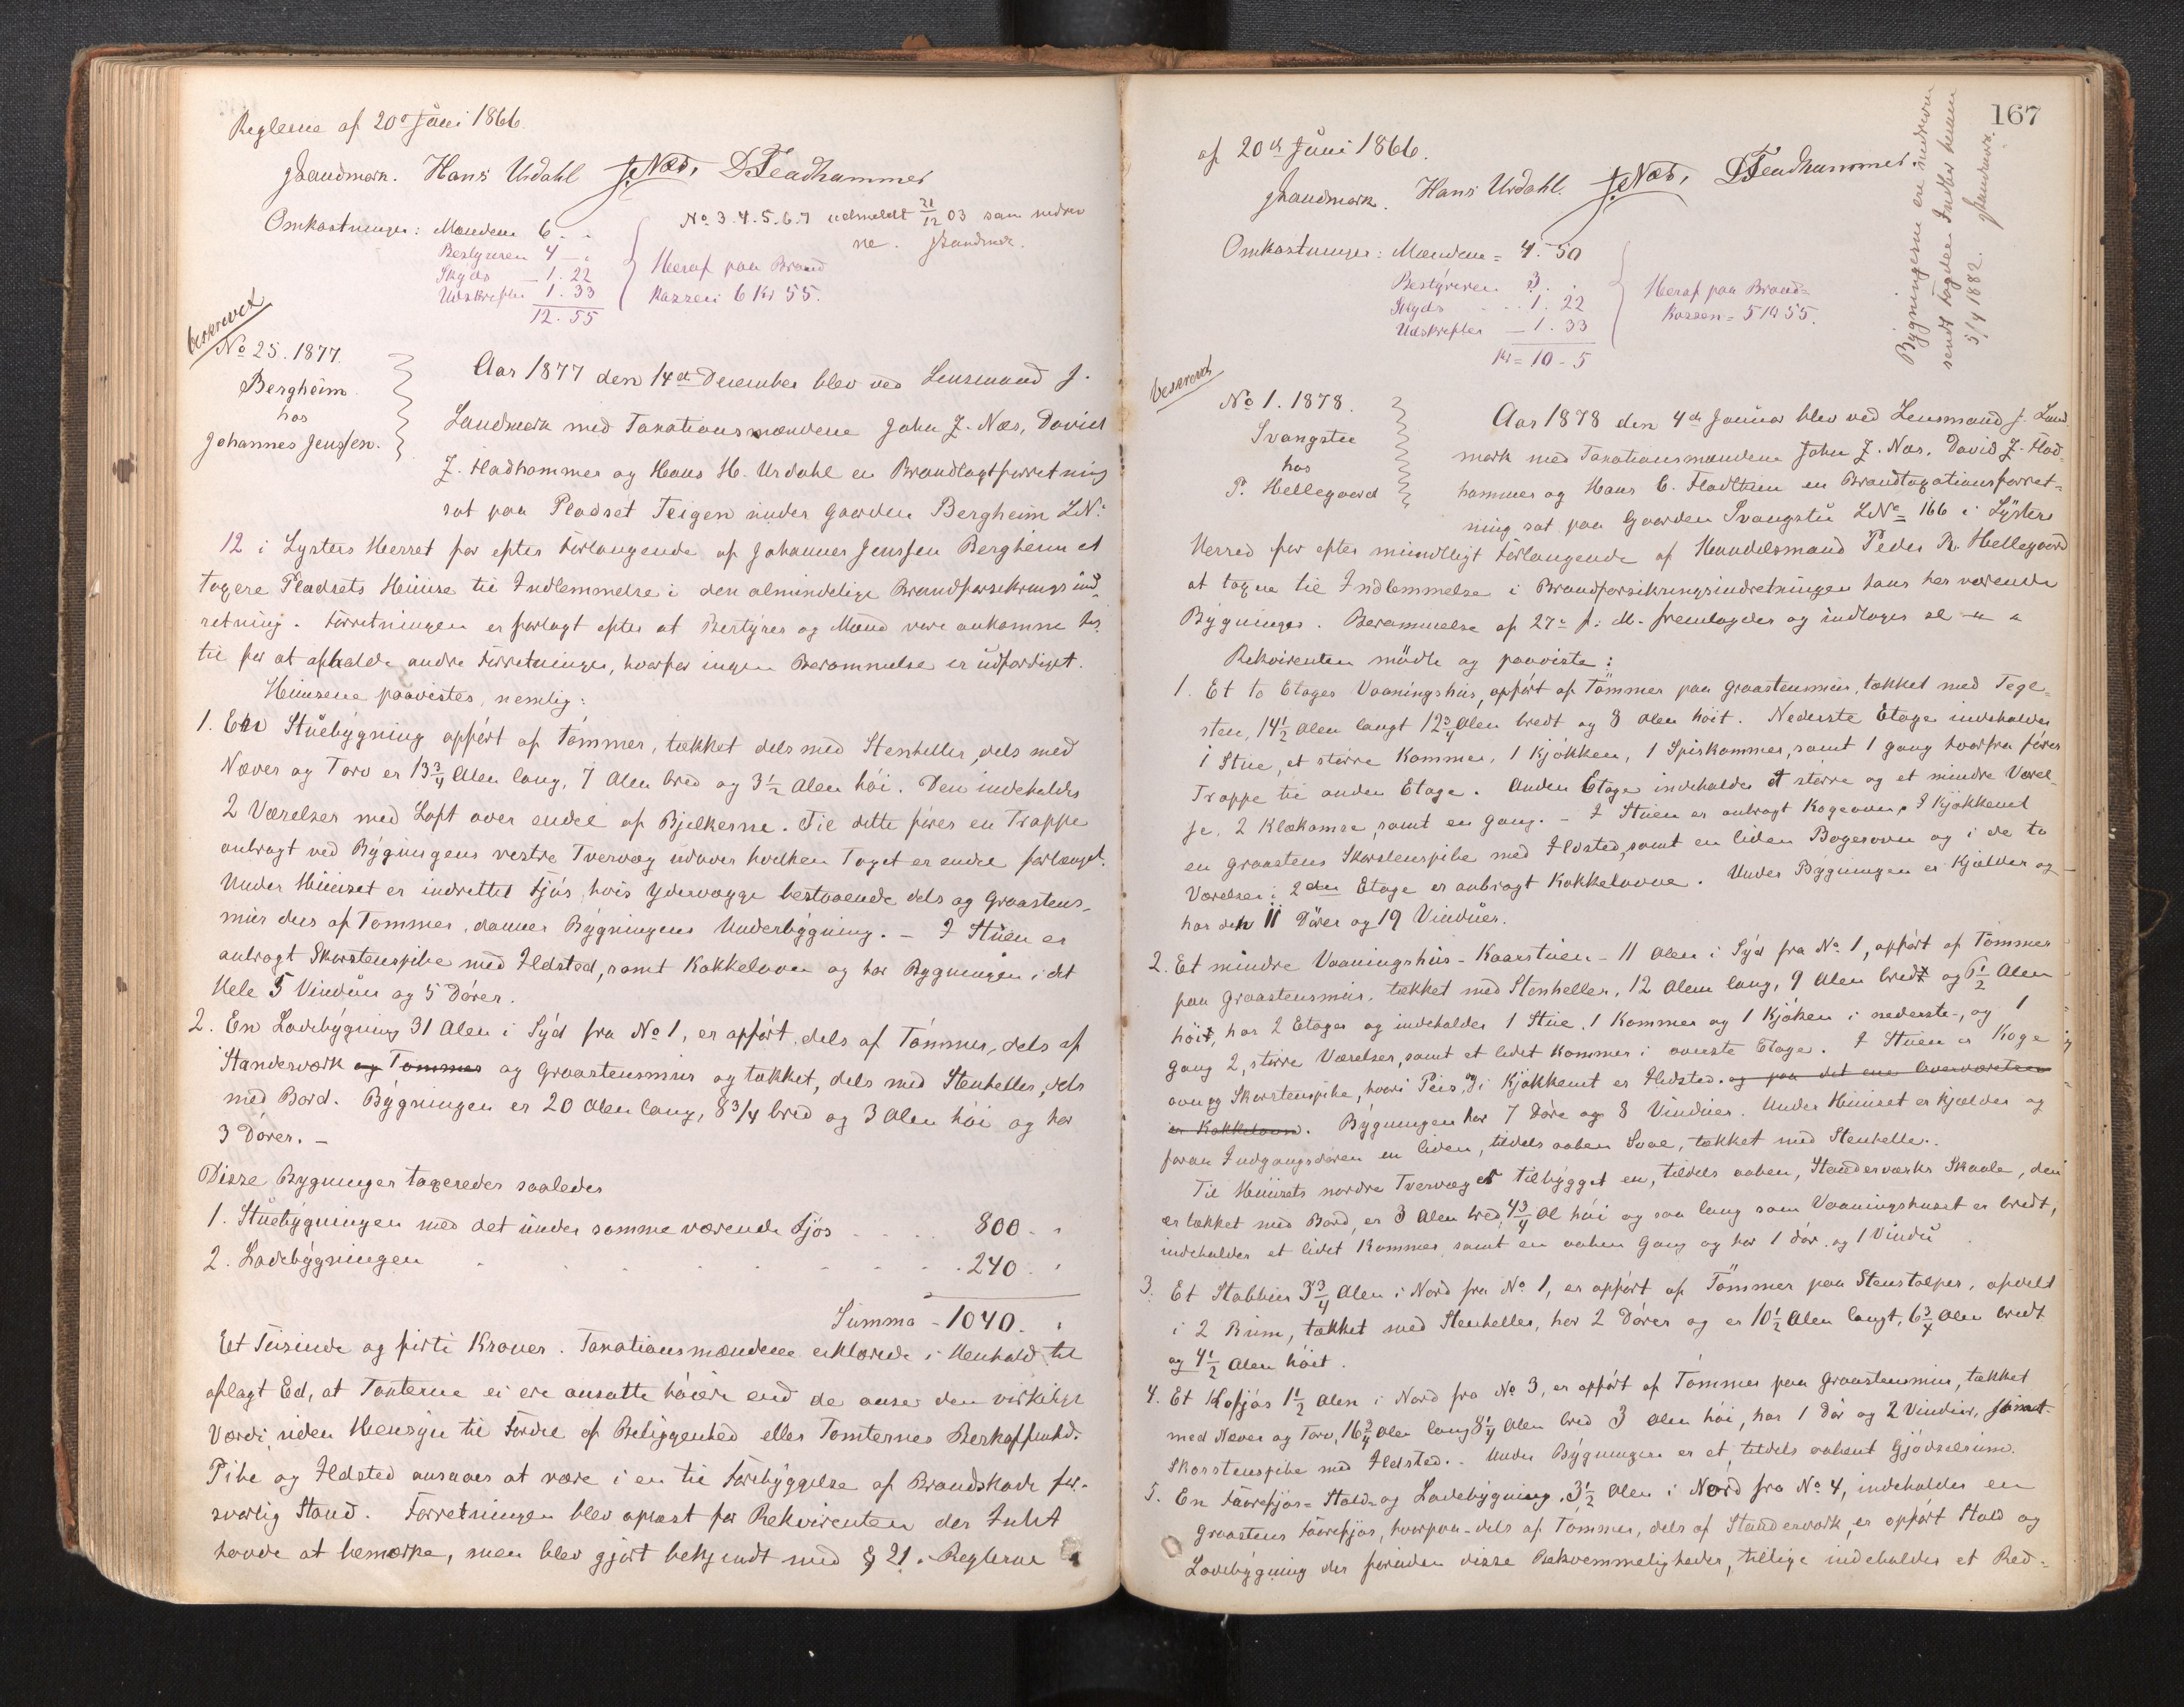 Reglerne af 20de Juni 1866.
JLandmark. Hans Urdahl JNæs, DFladhammer
Omkostninger: Mændene 6 - "
Bestyreren 4 - "
Skyds - 1. 22
Udskrifter 1. 33
12. 55
Heraf paa Brand
Kassen 6 Kr 55.
No 3. 4. 5. 6. 7 udmeldt 21/12 03 som nedrev
ne. JLandmrk.
beskrevet
No 25. 1877.
Bergheim
hos
Johannes Jenssen.
Aar 1877 den 14de December blev ved Lensmand J.
Landmark med Taxationsmændene John J. Næs, David
J. Fladhammer og Hans H. Urdahl en Brandtaxtforretning
sat paa Pladset Teigen under Gaarden Bergheim LNo
12 i Lysters Herret for efter Forlangende af Johannes Jenssen Bergheim at
taxere Pladsets Huuse til Indlemmelse i den almindelige Brandforsikrings ind-
retning. Forretningen er forlagt efter at Bestyrer og Mænd vare ankomne her
til for at afholde andre Forretninger, hvorfor ingen Berammelse er udfærdiget.
Huusene paavistes, nemlig:
1. En Stuebygning opført af Tømmer, tækket dels med Stenheller, dels med
Næver og Torv er 13 3/4 Alen lang, 7 Alen bred og 3 1/2 Alen høi. Den indeholder
2 Værelser med Loft over endel af Bjelkerne. Til dette føres en Trappe
anbragt ved Bygningens vestre Tvervæg udover hvilken Taget er endel forlænget.
Under Huuset er indrettet Fjøs, hvis Ydervægge bestaaende dels og Graastens-
muur dels af Tømmer, danner Bygningens Underbygning. - I Stuen er
anbragt Skorstenspibe med Ildsted, samt Kakkelovn og har Bygningen i det
Hele 5 Vinduer og 5 Dører.
2. En Ladebygning 31 Alen i Syd fra No 1, er opført, dels af Tømmer, dels af
Standerværk og Tømmer og Graastensmuur og tækket, dels med Stenheller, dels
med Bord. Bygningen er 20 Alen lang, 8 3/4 bred og 3 Alen høi og har
3 Dører. -
Disse Bygninger taxeredes saaledes
1. Stuebygningen med det under samme værende Fjøs . . . . 800 - "
2. Ladebygningen . . . . . . . . 240 . "
Summa - 1040. "
Et Tusinde og firti Kroner. Taxationsmændene erklærede i Henhold til
aflagt Ed, at Taxterne ei ere ansatte høiere end de anser den virkelige
Værdi, uden Hensyn til Fordel af Beliggenhed eller Tomternes Beskaffenhd.
Pibe og Ildsted ansaaes at være i en til Forebyggelse af Brandskade for-
svarlig Stand. Forretningen blev oplæst for Rekvirenten der Intet
havde at bemærke, men blev gjort bekjendt med § 21. Reglerne
167
af 20de Juni 1866.
JLandmark. Hans Urdahl. JNæs, DFladhammer.
Omkostninger: Mændene = 4. 50
Bestyreren 3. .
Skyds - . . 1. 22
Udskrifter - 1. 33
Kr = 10 - 5
Heraf paa Brand=
Kassen = 5 Kr 55.
Bygningerne ere nedrevne
sendt Fogden Indber herom
5/4 1882. JLandmark.
beskrevet
No 1. 1878.
Svangstu
hos
P. Hellegaard
Aar 1878 den 4de Januar blev ved Lensmand J. Land
mark med Taxationsmændene John J. Næs, David J. Flad-
hammer og Hans C. Fladthun en Brandtaxationsforret=
ning sat paa Gaarden Svangstu LNo = 166 i Lysters
Herred for efter mundtligt Forlangende af Handelsmand Peder R. Hellegaard
at taxere til Indlemmelse i Brandforsikringsindretningen hans her værende
Bygninger. Berammelse af 27de f: M. fremlagdes og indtages sl - " "
Rekvirenten mødte og paaviste:
1. Et to Etages Vaaningshus, opført af Tømmer paa Graastensmuur, tækket med Tege-
sten, 14 1/2 Alen langt 12 3/4 Alen bredt og 8 Alen høit. Nederste Etage indeholder
1 Stue, et større Kammer, 1 Kjøkken, 1 Spiskammer, samt 1 Gang hvorfra fører
Trappe til anden Etage. Anden Etage indeholder et større og et mindre Værel-
se, 2 Klækamre, samt en Gang. - I Stuen er anbragt Kogeovn, I Kjøkkenet
en Graastens Skorstenspibe med Ildsted, samt en liden Bagerovn og i de to
Værelser i 2den Etage er anbragt Kakkelovne. Under Bygningen er Kjælder og
har den 11 Dører og 19 Vinduer.
2. Et mindre Vaaningshus - Kaarstuen - 11 Alen i Syd fra No 1, opført af Tømmer
paa Graastensmuur, tækket med Stenheller, 12 Alen lang, 9 Alen bredt og 6 1/2 Alen
høit, har 2 Etager og indeholder 1 Stue, 1 Kammer og 1 Kjøken i nederste-, og 1
Gang 2, større Værelser, samt et lidet Kammer i øverste Etage. I Stuen er Koge
ovn og Skorstenspibe, hvori Peis, og i Kjøkkenet er Ildsted. og paa det ene Overværelsen
er Kakkelovn. Bygningen har 7 Døre og 8 Vinduer. Under Huuset er Kjælder og
foran Indgangsdøren en liden, tildels aaben Sval, tækket med Stenhelle.
Til Huusets nordre Tvervæg er tilbygget en, tildels aaben, Standerværks Skaale, den
er tækket med Bord, er 3 Alen bred, 4 3/4 Al høi og saa lang som Vaaningshuset er bredt,
indeholder et lidet Kammer, samt en aaben Gang og har 1 Dør og 1 Vindu.
3. Et Stabbur 3 3/4 Alen i Nord fra No 1, er opført af Tømmer paa Stenstolper, afdelt
i 2 Rum, tækket med Stenheller, har 2 Dører og er 10 1/2 Alen langt, 6 3/4 Alen bredt
og 4 1/2 Alen høit.
4. Et Kofjøs 1 1/2 Alen i Nord fra No 3, er opført af Tømmer paa Graastensmuur, tækket
med Næver og Torv, 16 3/4 Alen lang 8 1/4 Alen bred 3 Alen høi, har 1 Dør og 2 Vinduer, samt
Skorstenspibe med Ildsted. - Under Bygningen er et, tildels aabent Gjødselrum.
5. En Faarefjøs- Stald- og Ladebygning, 3 1/2 Alen i Nord fra No 4, indeholder en
Graastens Faarefjøs, hvorpaa - dels af Tømmer, dels af Standerværk, er opført Stald og
Ladebygning der foruden disse Bekvemmeligheder, tillige indeholder et Red-